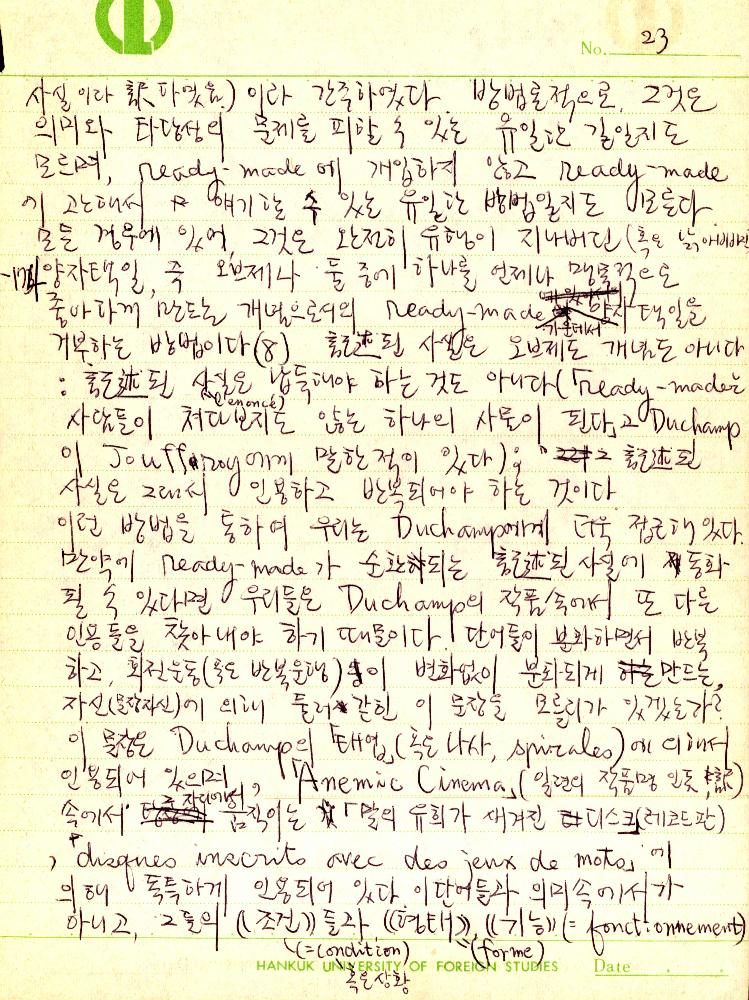 No. 23
사실이다 譯하였음.) 이라 간주하였다. 방법론적으로, 그것은
의미와 타당성의 문제를 피할 수 있는 유일한 길일지도
모르며, ready-made에 개입하지 않고 ready-made
에 관해서 얘기할 수 있는 유일한 방법일지도 모른다.
모든 경우에 있어, 그것은 완전히 유행이 지나버린 (혹은 낡아빠진)
양자택일, 즉 오브제나 둘 중에 하나를 언제나 맹목적으로
좋아하게 만드는 개념으로서의 ready-made 가운데서 양자택일을
거부하는 방법이다(8) 記述된 사실은 오브제도 개념도 아니다
: 記述된 사실은 납득해야 하는 것도 아니다(「ready-made는
(l'énoncé)
사람들이 쳐다보지도 않는 하나의 사물이 된다」고 Duchamp
이 Jouffroy에게 말한 적이 있다); 그 記述된
사실은 그래서 인용하고 반복되어야 하는 것이다
이런 방법을 통하여 우리는 Duchamp에게 더욱 접근해 있다.
만약에 ready-made가 순환되는 記述된 사실에 동화
될 수 있다면 우리들은 Duchamp의 작품속에서 또 다른
인용들을 찾아내야 하기 때문이다. 단어들이 분화하면서 반복
하고, 회전운동(혹은 반복운행)이 변화없이 분화되게 만드는,
자신(문장자신)에 의해 둘러 갇힌 이 문장을 모를리가 있겠는가?
이 문장은 Duchamp의 「태엽」(혹은 나사, spirales)에 의해서
인용되어 있으며, 「Anemic Cinema」(일련의 작품명인듯 譯)
속에서 제자리에서 움직이는 「말의 유희가 새겨진 디스크(레코드판)
, disques inscrits avec des jeux de mots」에
의해 독특하게 인용되어 있다 이 단어들과 의미속에서가
아니고, 그들의 《조건》들과 《형태》, 《기능》(=fonctionnement)
(=condition) (forme)
혹은 상황
HANKUK UNIVERSITY OF FOREIGN STUDIES Date . .